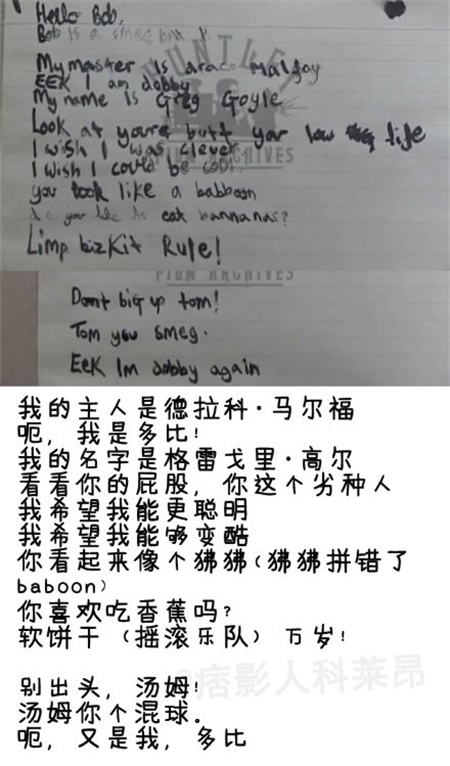 Hello Bob,
Bob is a smeg
My master is draco Malfoy
EEK I am dobby
My name is Greg Goyle
Look at youre butt your low life
I wish I was clever
I wish I could be cool,
you look like a babboon
eat bannanas?
Limp bizKit Rule!
HUNTLEY
FILM ARCHIVES
FILM ARCHIVES
Dont big up tom!
Tom you smeg.
EEK Im dobby again
我的主人是德拉科·马尔福
呃，我是多比！
我的名字是格雷戈里·高尔
看看你的屁股，你这个劣种人
我希望我能更聪明
我希望我能够变酷
你看起来像个狒狒（狒狒拼错了
baboon）
你喜欢吃香蕉吗？
软饼干（摇滚乐队）万岁！
别出头，汤姆！
汤姆你个混球.
呃，又是我，多比
@痞影人科莱昂